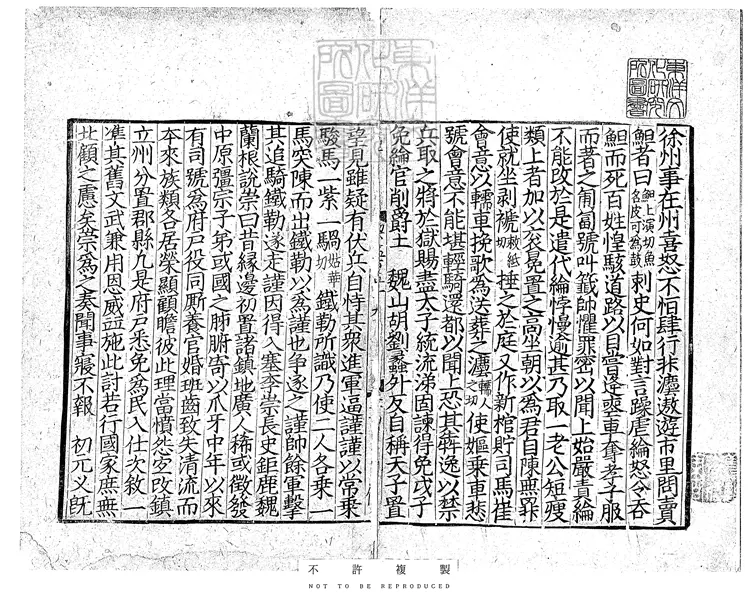 徐州事在州喜怒不恒肆行非灋遨遊市里問賣
䱇者曰䱇上演切魚名皮可為鼓刺史何如對言躁虐綸怒令吞
䱇而死百姓惶駭道路以目嘗逢䘮車奪孝子服
而著之匍匐號叫籖帥懼罪密以聞上始嚴責綸
不能改於是遣代綸悖慢逾甚乃取一老公短瘦
類上者加以衮冕置之高坐朝以為君自陳無罪
使就坐剥褫敕紙切捶之於庭又作新棺貯司馬崔
會意以轜車挽歌為送葬之灋轜人之切使嫗乗車悲
號會意不能堪輕騎還都以聞上恐其奔逸以禁
兵取之將於獄賜盡太子統流涕固諫得免戊子
免綸官削爵土　魏山胡劉蠡升反自稱天子置
望見雖疑有伏兵自恃其衆進軍逼謹謹以常乗
駿馬一紫一騧姑華切鐵勒所識乃使二人各乗一
馬突陳而出鐵勒以為謹也争逐之謹帥餘軍擊
其追騎鐵勒遂走謹因得入塞李崇長史鉅鹿魏
蘭根說崇曰昔緣邊初置諸鎮地廣人稀或徵發
中原彊宗子弟或國之肺腑寄以爪牙中年以來
有司號為府戶役同厮養官婚班齒致失清流而
本來族類各居榮顯顧瞻彼此理當憤怨宜改鎮
立州分置郡縣凡是府戶悉免為民入仕次敘一
準其舊文武兼用恩威並施此計若行國家庶無
北顧之慮矣崇為之奏聞事寢不報　初元义既
東洋文化研究所圖書
不許複製
NOT TO BE REPRODUCED